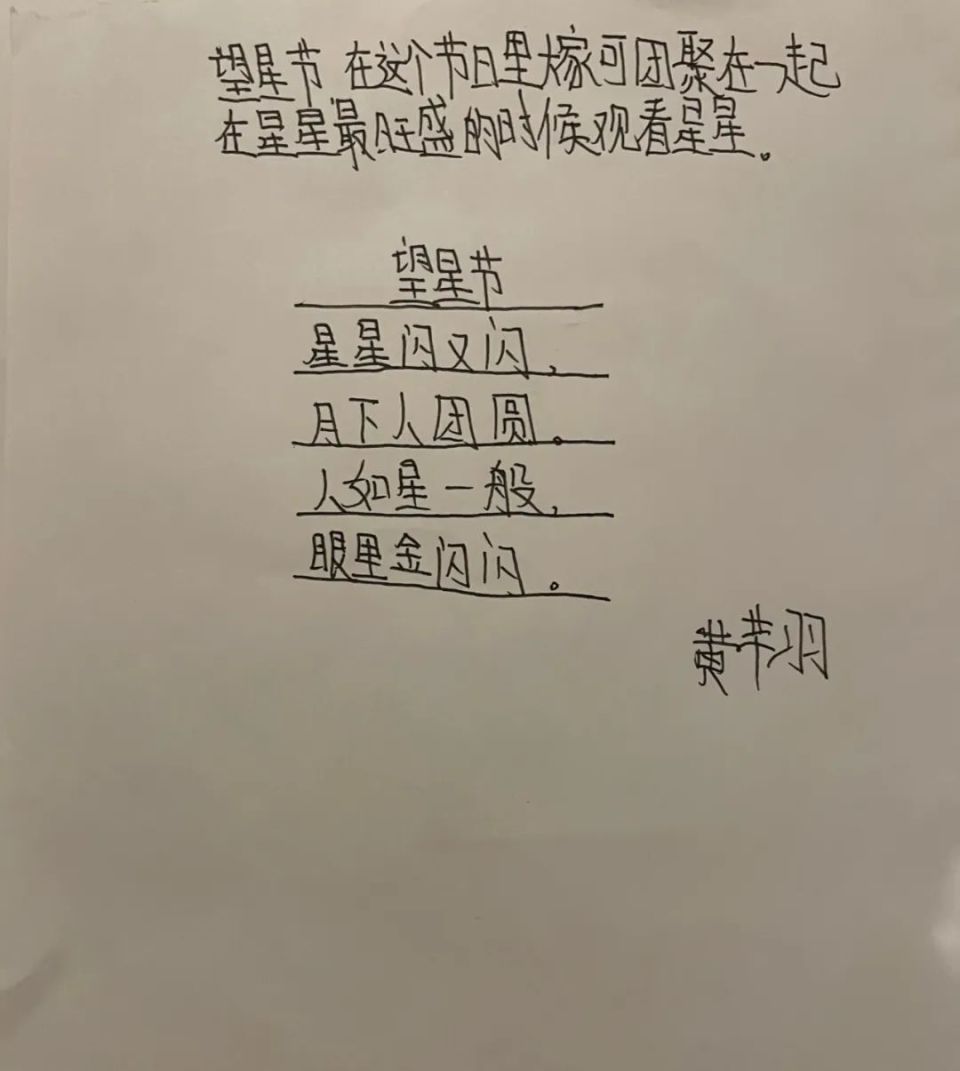 望星节 在这个节日里大家可团聚在一起
在星星最旺盛的时候观看星星。
望星节
星星闪又闪，
月下人团圆。
人如星一般，
眼里金闪闪。
黄芊羽